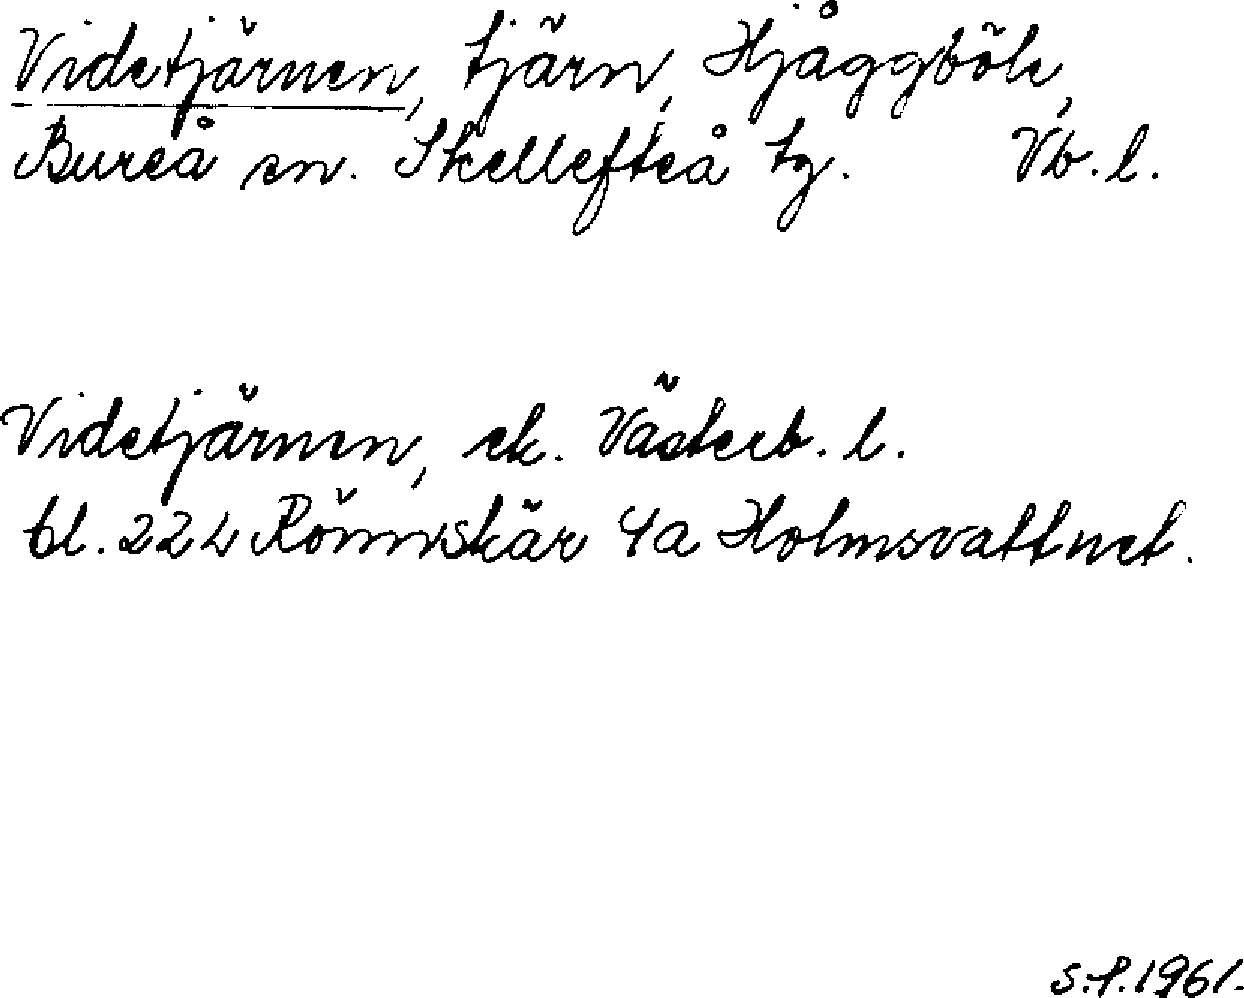 Videtjärnen, tjärn, Hjåggböle,
Bureå sn. Skellefteå tg. Vb.l.
Videtjärnen, ek. Västerb.l.
bl. 22L Rönnskär 4a Holmsvattnet.
S.P.1961.